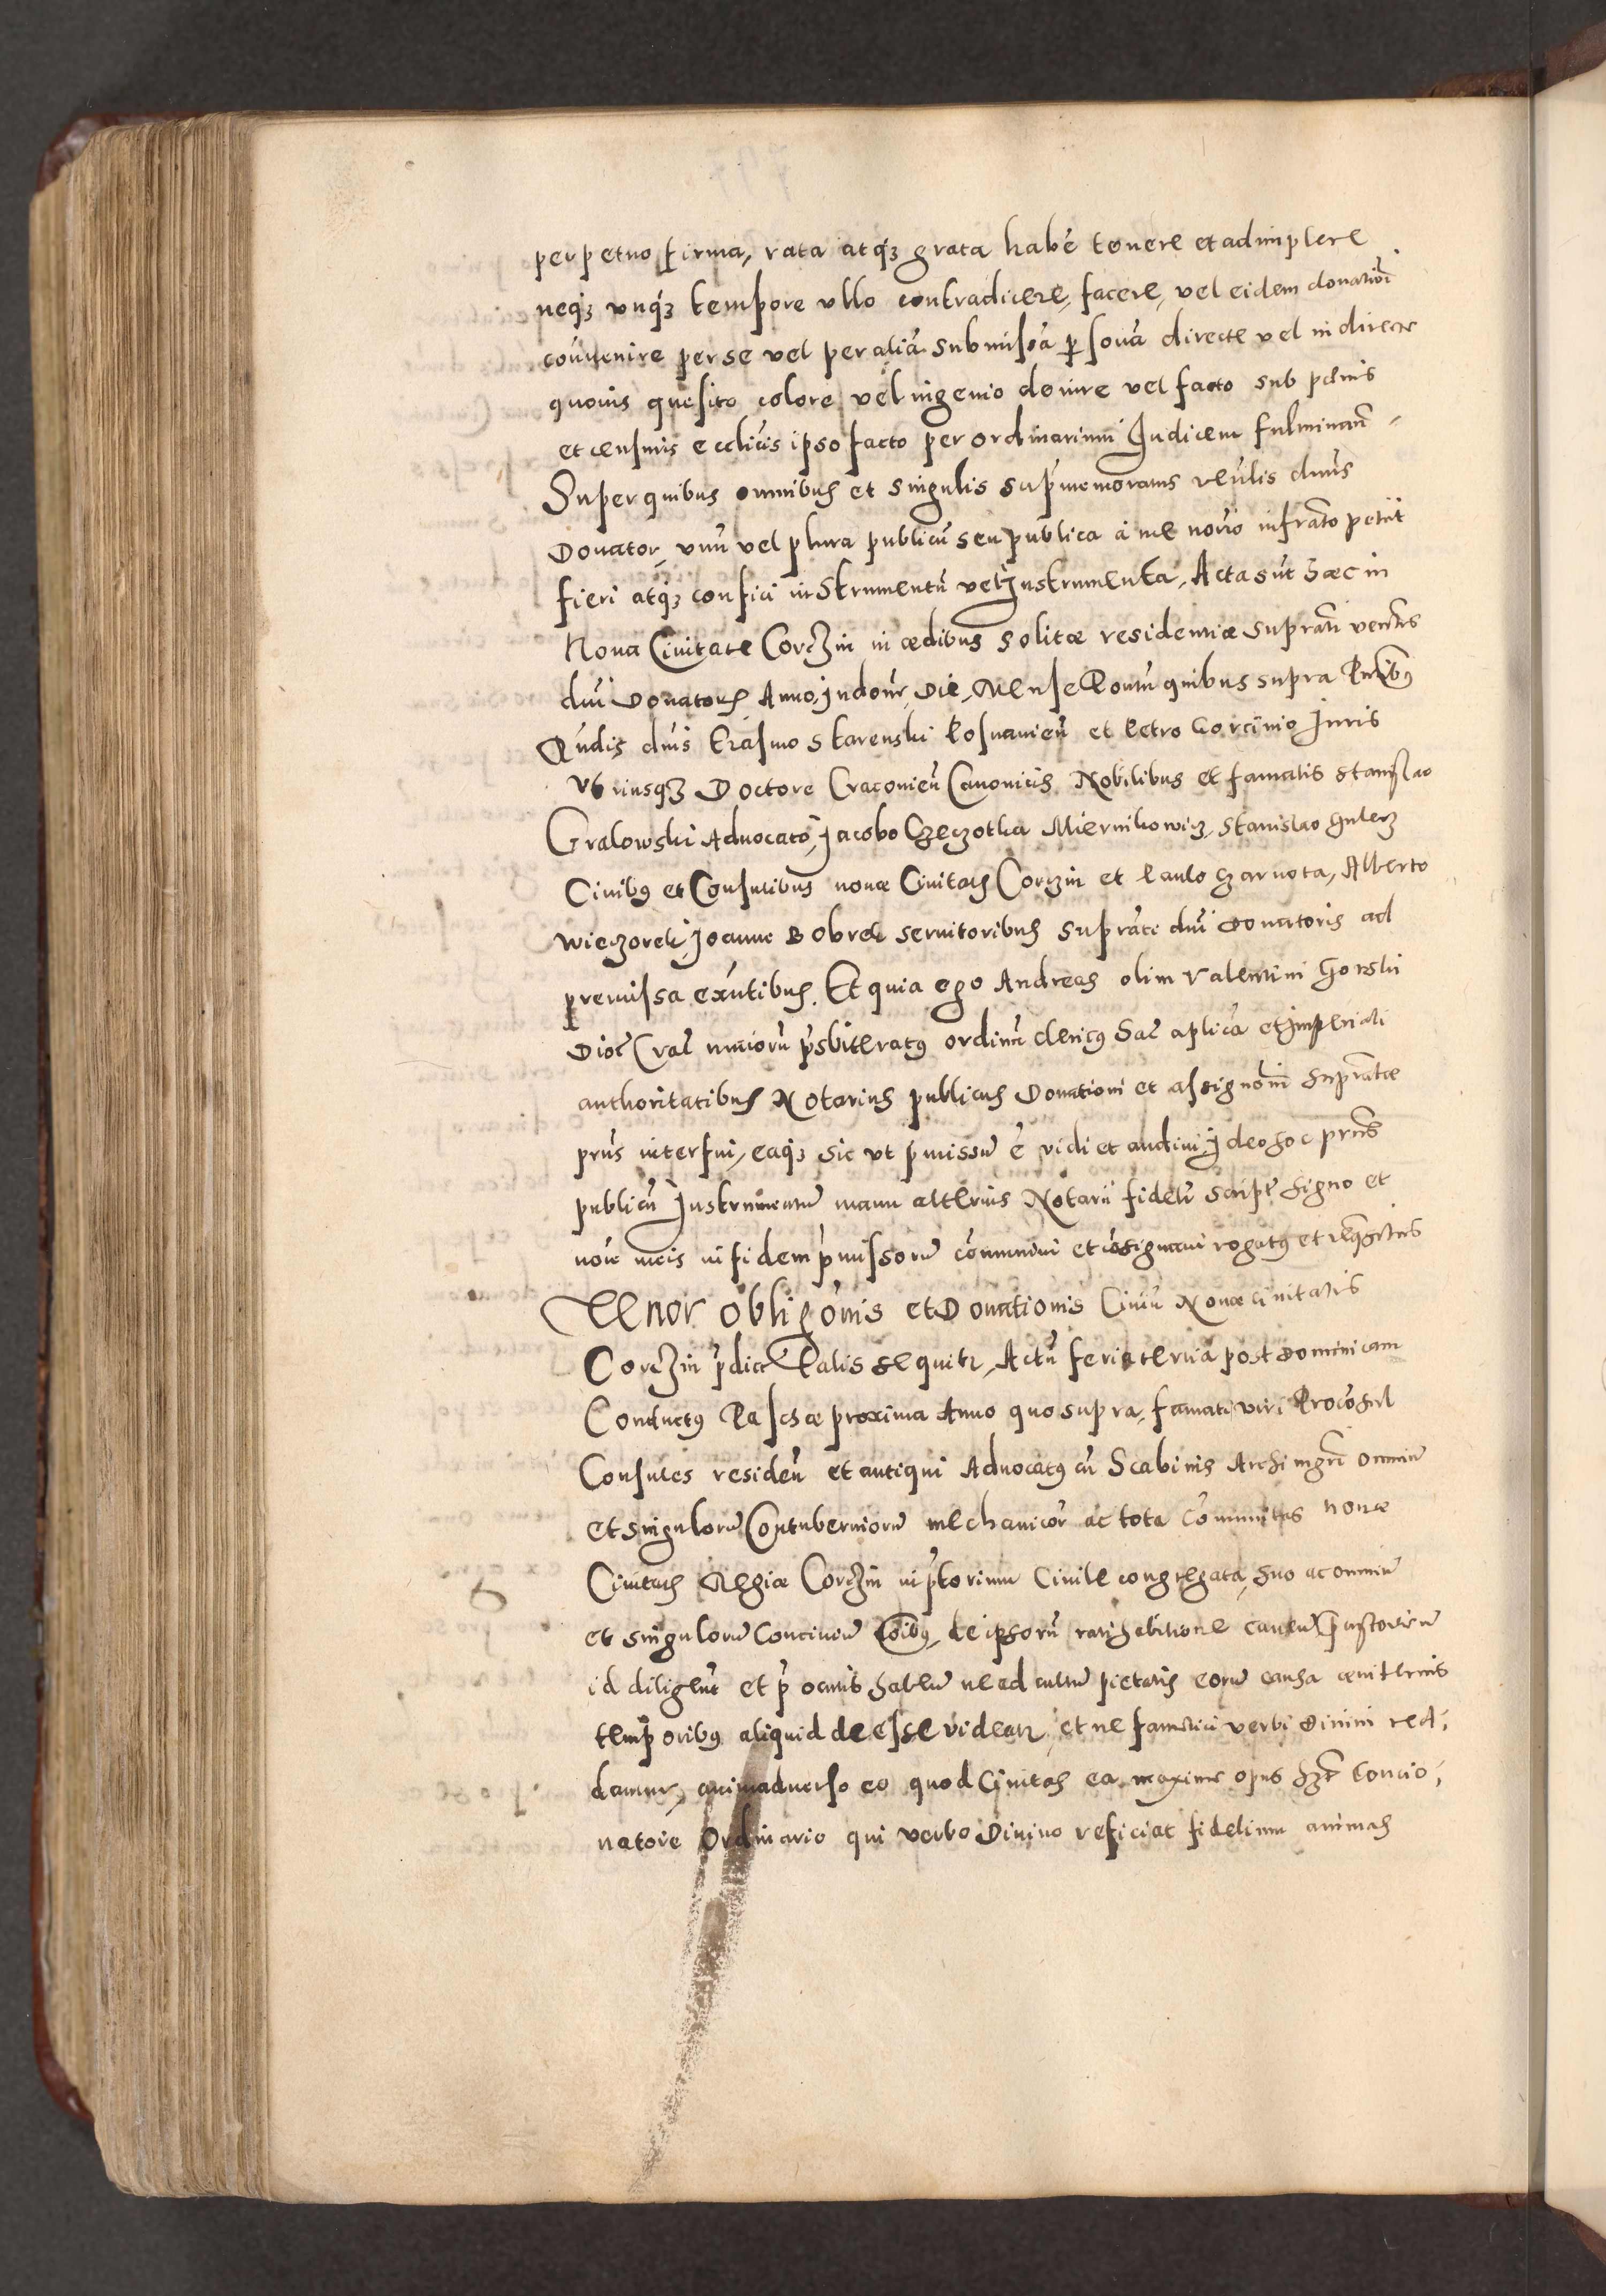 perpetuo firma, rata atq3 grata habē tenere et adimplere
neq3 vnq3 tempore vllo contradicere, facere, vel eidem donatiōi
cōuenire per se vel per aliā submissā ꝑsonā directe vel indirecte
quouis quesito colore vel ingenio de iure vel facto sub pœnis
et censuris eccl̄icis ipso facto per ordinarium Judicem fulminan̄
Super quibus omnibus et singulis sup̄memoratis dn̄us
Donator, vnū vel plura publicū seu publica a me no͞rio infra͞to petijt
fieri atq3 confici instrumentū vel Instrumenta, Acta sūt haec in
Noua Ciuitate Corczin in ædibus solitæ residentiæ supra͞ti
dn̄i Donatoris Anno, Die, Mense quibus supra
dn̄is Erasmo Skarenski Posnanien̄ et Petro Gorcinio Juris
vtriusq3 Doctore Cracouien̄ Canonicis Nobilibus et famatis Stanislao
Gralowski Aduocato, Jacobo Czeczotka Miernikowicz, Stanislao
Ciuib9 et Consulibus nouæ Ciuitatis Corczin et Paulo Czarnota, Alberto
Wieczorek, Joanne Bobrek seruitoribus supra͞ti dn̄i Donatoris ad
premissa exn̄tibus. Et quia ego Andreas olim Valentini Gorski
Dioc̄ Crac̄ maiorū p̄sbiterat9 ordinū cleric9 Sac̄ ap̄lica et Imperiali
authoritatibus Notarius publicus Donationi et assignōni supra͞tæ
p̄ns interfui, eaq3 sic vt p̄missū ē vidi et audiui, Ideo hoc p̄ns
publicū Instrumentum manu alterius Notarii fideli script̄ signo et
noīe meis in fidem p̄missorū cōmuniui et cōsignaui rogat9 et
Tenor obligōnis et Donationis Ciuiū Nouæ Ciuitatis
Corczin p̄dict Talis sequit͞r, Actū feria tertia post Dominicam
Conduct9 Paschæ proxima Anno quo supra, famati viri Procōsul
Consules residen̄ et antiqui Aduocat9 cū Scabinis Archimgr̄i omniū
et singulorū Contuberniorū mechanicor͞ ac tota Cōmunitas nouæ
Ciuitatis Regiæ Corczin in p̄torium Ciuile congregata, suo ac omniū
et singulorū Conciuium de ipsorū ratihabitione cauen̄
id diligen̄t et p̄ oculis haben̄ ne ad cultū pietatis eorū causa æuiternis
temporib9 aliquid deesse videat͞r, et ne famelici verbi Diuini red;
damur, animaduerso eo quod Ciuitas ea maxime opus Concio;
natore Ordinario qui verbo Diuino reficiat fidelium animas